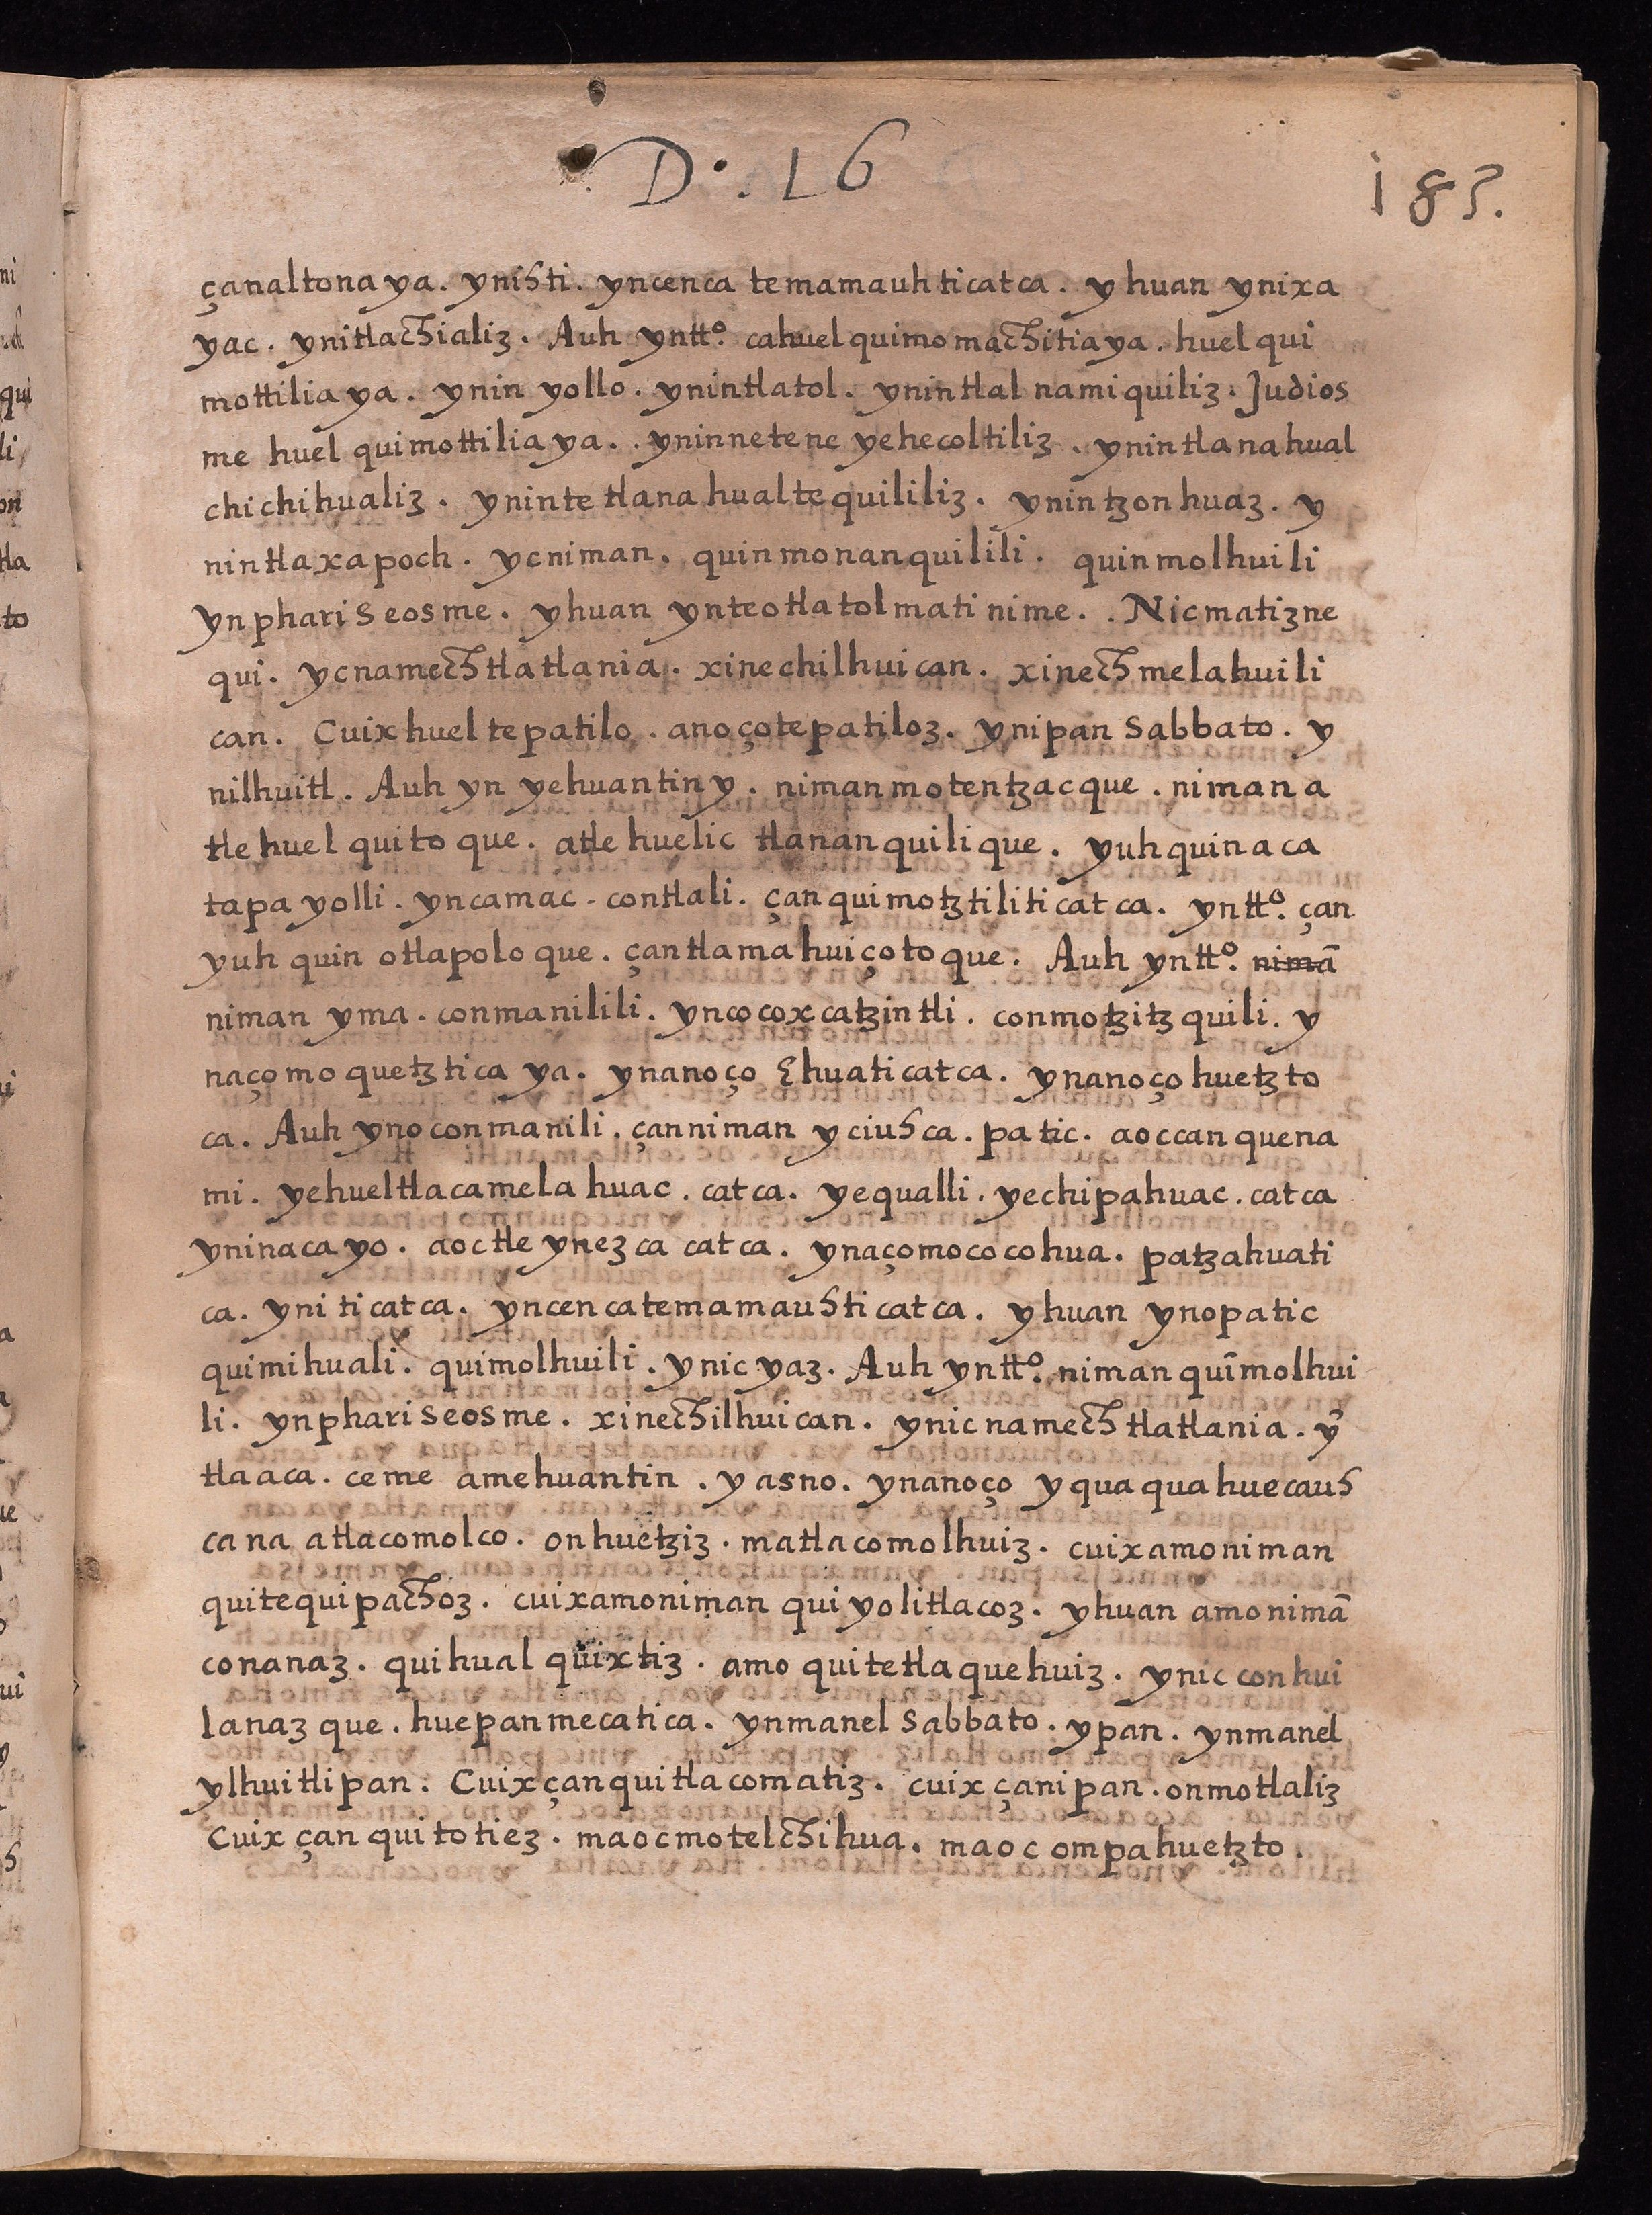 D. . 16
185.
çanaltonaya. ynihti. yncenca temamauhticatca. yhuan ynixa
yac. ynitlachializ. Auh yntt.º cahuelquimomachitiaya. huelqui
mottiliaya. ynin yollo. ynintlatol. ynintlalnamiquiliz. Judios
me huel quimottiliaya.. yninneteneyehecoltiliz. ynintlanahual
chichihualiz. ynintetlanahualtequililiz. ynintzonhuaz. y
nintlaxapoch. ycniman. quinmonanquilili. quinmolhuili
ynphariseosme. yhuan ynteotlatolmatinime.. Nicmatizne
qui. ycnamechtlatlania. xinechilhuican. xinechmelahuili
can. Cuixhueltepatilo. anoçotepatiloz. ynipan Sabbato. y
nilhuitl. Auh yn yehuantiny. nimanmotentzacque. nimana
tlehuel quitoque. atlehuelic tlananquilique. yuhquinaca
tapayolli. yncamac. contlali. çanquimotztiliticatca. yntt.º çan
yuh quin otlapoloque. çantlamahuiçotoque. Auh yntt.º nimā
niman yma. conmanilili. yncocoxcatzintli. conmotzitzquili. y
naçomoquetzticaya. ynanoço Ehuaticatca. ynanoçohuetzto
ca. Auh ynoconmanili. çanniman yciuhca. patic. aoccanquena
mi. yehueltlacamelahuac. catca. yequalli. yechipahuac. catca
yninacayo. aoctle ynezca catca. ynaçomococohua. patzahuati
ca. yniticatca. yncencatemamauhticatca. yhuan ynopatic
quimihuali. quimolhuili. ynicyaz. Auh yntt.º niman quīmolhui
li. ynphariseosme. xinechilhuican. ynicnamechtlatlania. yn̄
tlaaca. ceme amehuantin. yasno. ynanoço yquaquahuecauh
cana atlacomolco. onhuetziz. matlacomolhuiz. cuixamoniman
quitequipachoz. cuixamoniman quiyolitlacoz. yhuan amonimā
conanaz. quihualquixtiz. amo quitetlaquehuiz. ynic conhui
lanazque. huepanmecatica. ynmanel Sabbato. ypan. ynmanel
ylhuitlipan. Cuixçanquitlacomatiz. cuixçanipan. onmotlaliz
Cuixçanquitotiez. maocmotelchihua. maoc ompahuetzto.